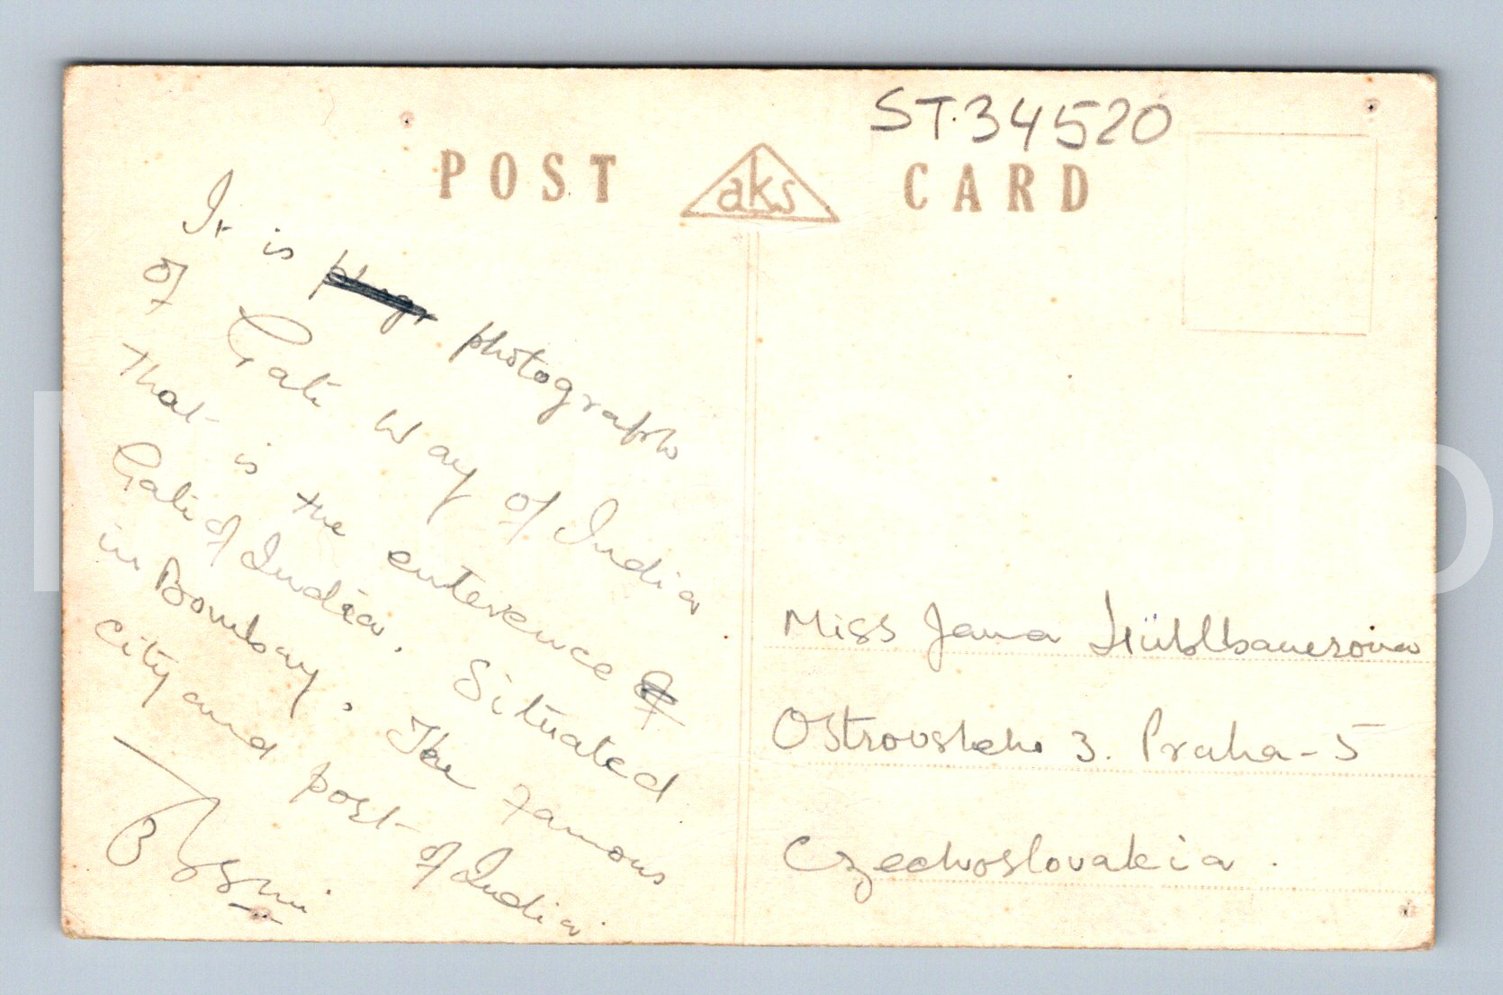 ST.34520
POST aks CARD
It is photograph
of Gate Way of India
That is the enterence of
Gate of India. Situated
in Bombay. The famous
city and post of India
Miss Jana Hüblbauerova
Ostrovskeho 3. Praha-5
Czechoslovakia.